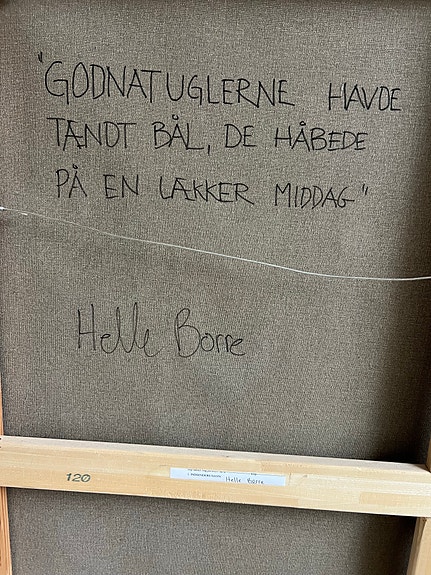 "GODNATUGLERNE HAVDE
TÆNDT BÅL, DE HÅBEDE
PÅ EN LÆKKER MIDDAG"
Helle Borre
120
Helle Borre